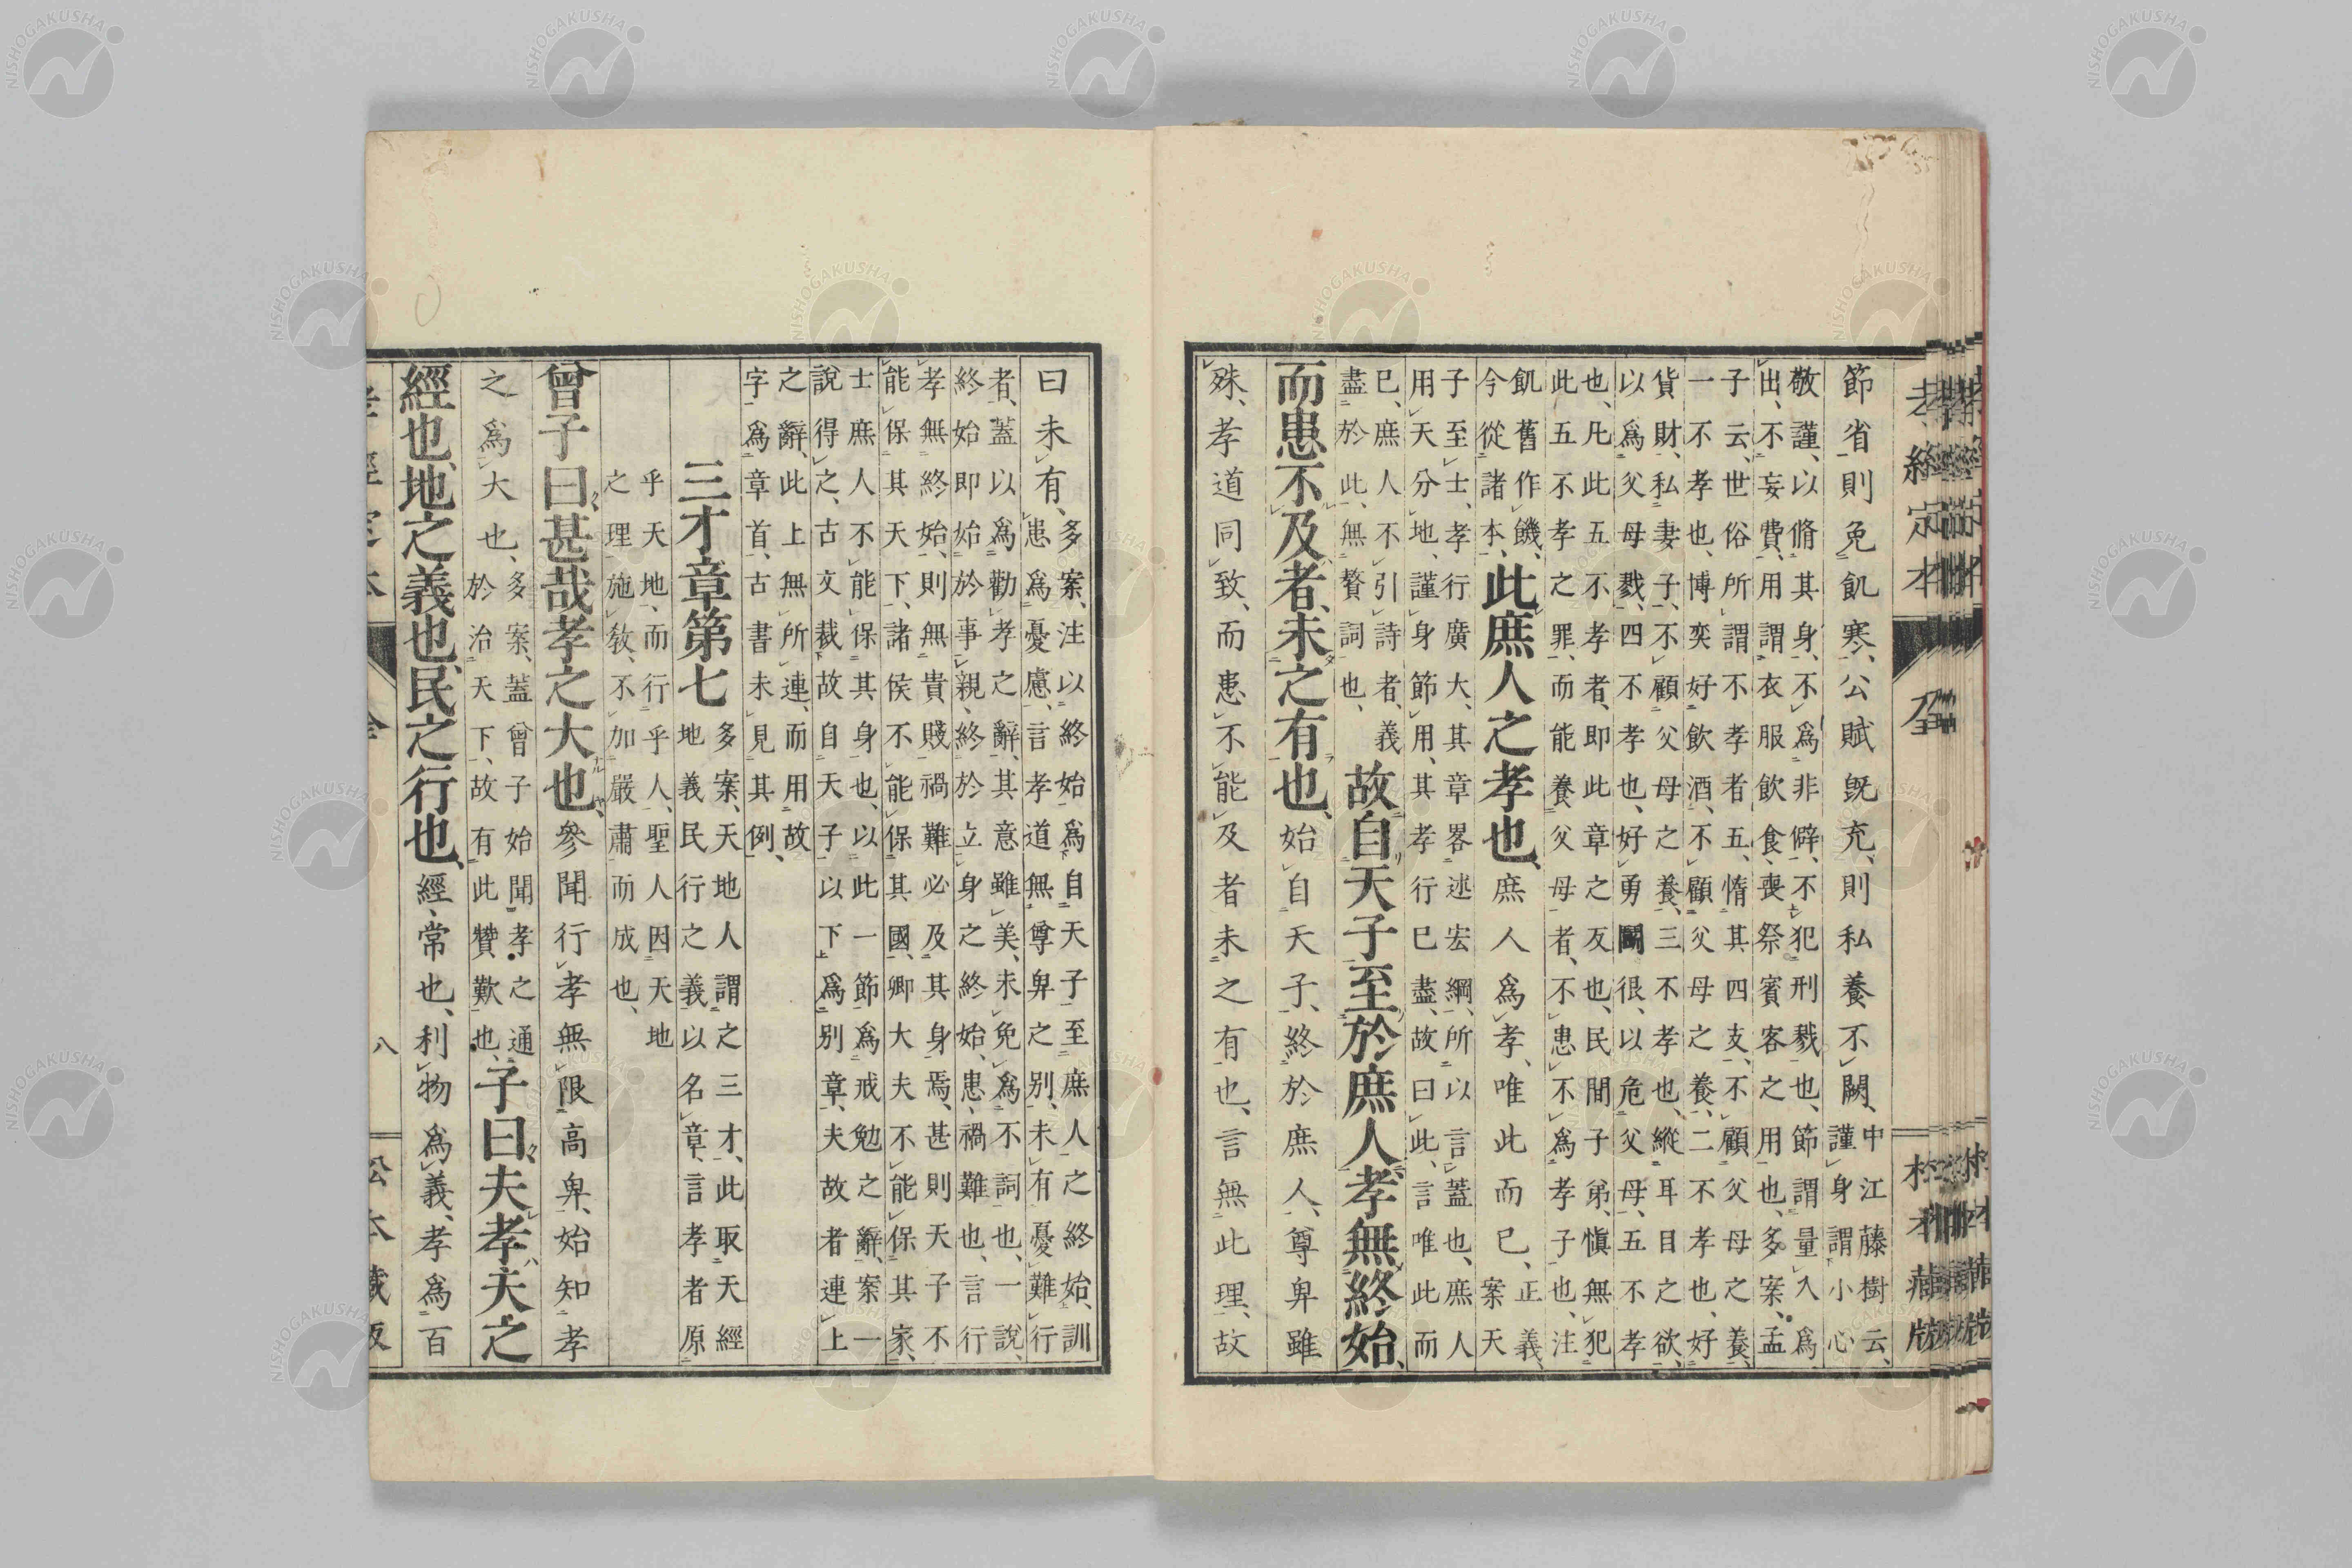 孝經定本 全 松本藏版
節省則免飢寒、公賦既充、則私養不闕、
中江藤樹云、
謹身謂小心
敬謹、以脩其身、不爲非僻、不犯刑戮也、節謂量入爲
出、不妄費、用謂衣服飲食、喪祭賓客之用也、多案、孟
子云、世俗所謂不孝者五、惰其四支、不顧父母之養、
一不孝也、博奕好飲酒、不顧父母之養、二不孝也、好
貨財、私妻子、不顧父母之養、三不孝也、縱耳目之欲、
以爲父母戮、四不孝也、好勇鬬很、以危父母、五不孝
也、凡此五不孝者、即此章之反也、民間子弟、愼無犯
此五不孝之罪、而能養父母者、不患不爲孝子也、注
飢舊作饑、
今從諸本、
此庶人之孝也、庶人爲孝、唯此而已、
正義、
案天
子至士、孝行廣大、其章畧述宏綱、所以言蓋也、庶人
用天分地、謹身節用、其孝行已盡、故曰此、言唯此而
已、庶人不引詩者、義
盡於此、無贅詞也、
故自天子至於庶人孝無終始、
而患不及者、未之有也、始自天子、終於庶人、尊卑雖
殊、孝道同致、而患不能及者未之有也、言無此理、故
曰未有、
多案、注以終始爲自天子至庶人之終始、訓
患爲憂慮、言孝道無尊卑之別、未有憂難行
者、蓋以爲勸孝之辭、其意雖美、未免爲不詞也、一說、
終始即始於事親、終於立身之終始、患、禍難也、言行
孝無終始、則無貴賤禍難必及其身焉、甚則天子不
能保其天下、諸侯不能保其國、卿大夫不能保其家、
士庶人不能保其身也、以此一節爲戒勉之辭、案一
說得之、古文裁故自天子以下爲別章、夫故者連上
之辭、此上無所連、而用故
字爲章首、古書未見其例、
三才章第七
多案、天地人謂之三才、此取天經
地義民行之義以名章、言孝者原
乎天地、而行乎人、聖人因天地
之理施敎、不加嚴肅而成也、
曾子曰甚哉孝之大也、參聞行孝無限高卑、始知孝
之爲大也、
多案、蓋曾子始聞孝之通
於治天下、故有此贊歎也、
子曰夫孝天之
經也、地之義也、民之行也、經、常也、利物爲義、孝爲百
孝經定本 全 八 松本藏版
NISHOGAKUSHA